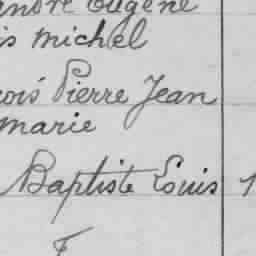 Eugène
is Michel
çois Pierre Jean
marie
Baptiste Louis 1
F